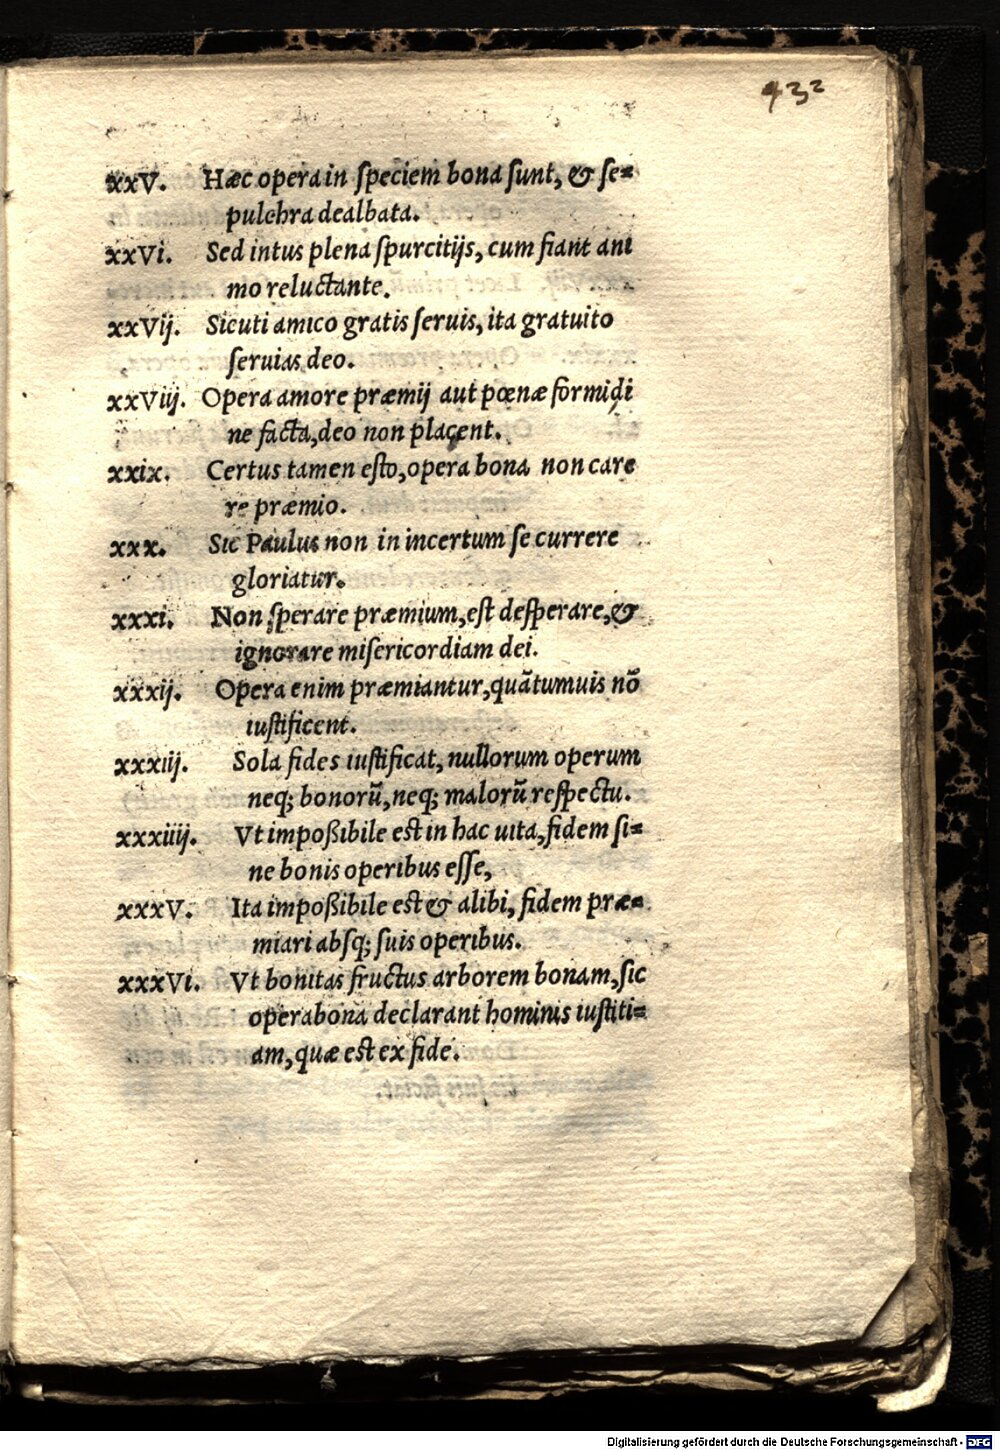 432
xxV. Hæc opera in ſpeciem bona ſunt, & ſe=
pulchra dealbata.
xxVi. Sed intus plena ſpurcitijs, cum fiant ani
mo reluctante.
xxVij. Sicuti amico gratis ſeruis, ita gratuito
ſeruias deo.
xxViij. Opera amore præmij aut pœnæ formidi
ne facta, deo non placent.
xxix. Certus tamen eſto, opera bona non care
re præmio.
xxx. Sic Paulus non in incertum ſe currere
gloriatur.
xxxi. Non ſperare præmium, eſt deſperare, &
ignorare miſericordiam dei.
xxxij. Opera enim præmiantur, quãtumuis nõ
iuſtificent.
xxxiij. Sola fides iuſtificat, nullorum operum
neq; bonorũ, neq; malorũ reſpectu.
xxxiiij. Vt impoßibile eſt in hac uita, fidem ſi=
ne bonis operibus eſſe,
xxxV. Ita impoßibile eſt & alibi, fidem præ=
miari abſq; ſuis operibus.
xxxVi. Vt bonitas fructus arborem bonam, ſic
opera bona declarant hominis iuſtiti=
am, quæ eſt ex fide.
Digitalisierung gefördert durch die Deutsche Forschungsgemeinschaft - DFG